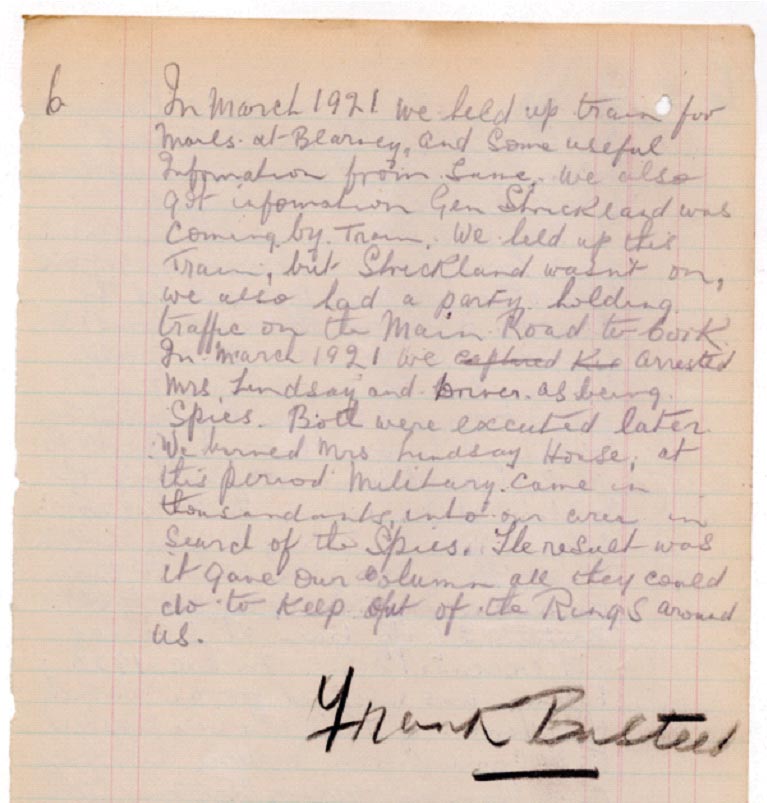 6
In March 1921 we held up train for
mails at Blarney, and some useful
Information from same. We also
got infomation Gen Strickland was
coming by Train. We held up this
Train, but Strickland wasn't on,
we also had a party holding
traffic on the Main Road to Cork
In March 1921 we captured arrested
Mrs Lindsay and Driver as being
Spies. Both were executed later.
We burned Mrs Lindsay House, at
this period Military came in
into our area in
search of the Spies. The result was
it gave our column all they could
do to keep out of the Rings around
us.
Frank Busteed